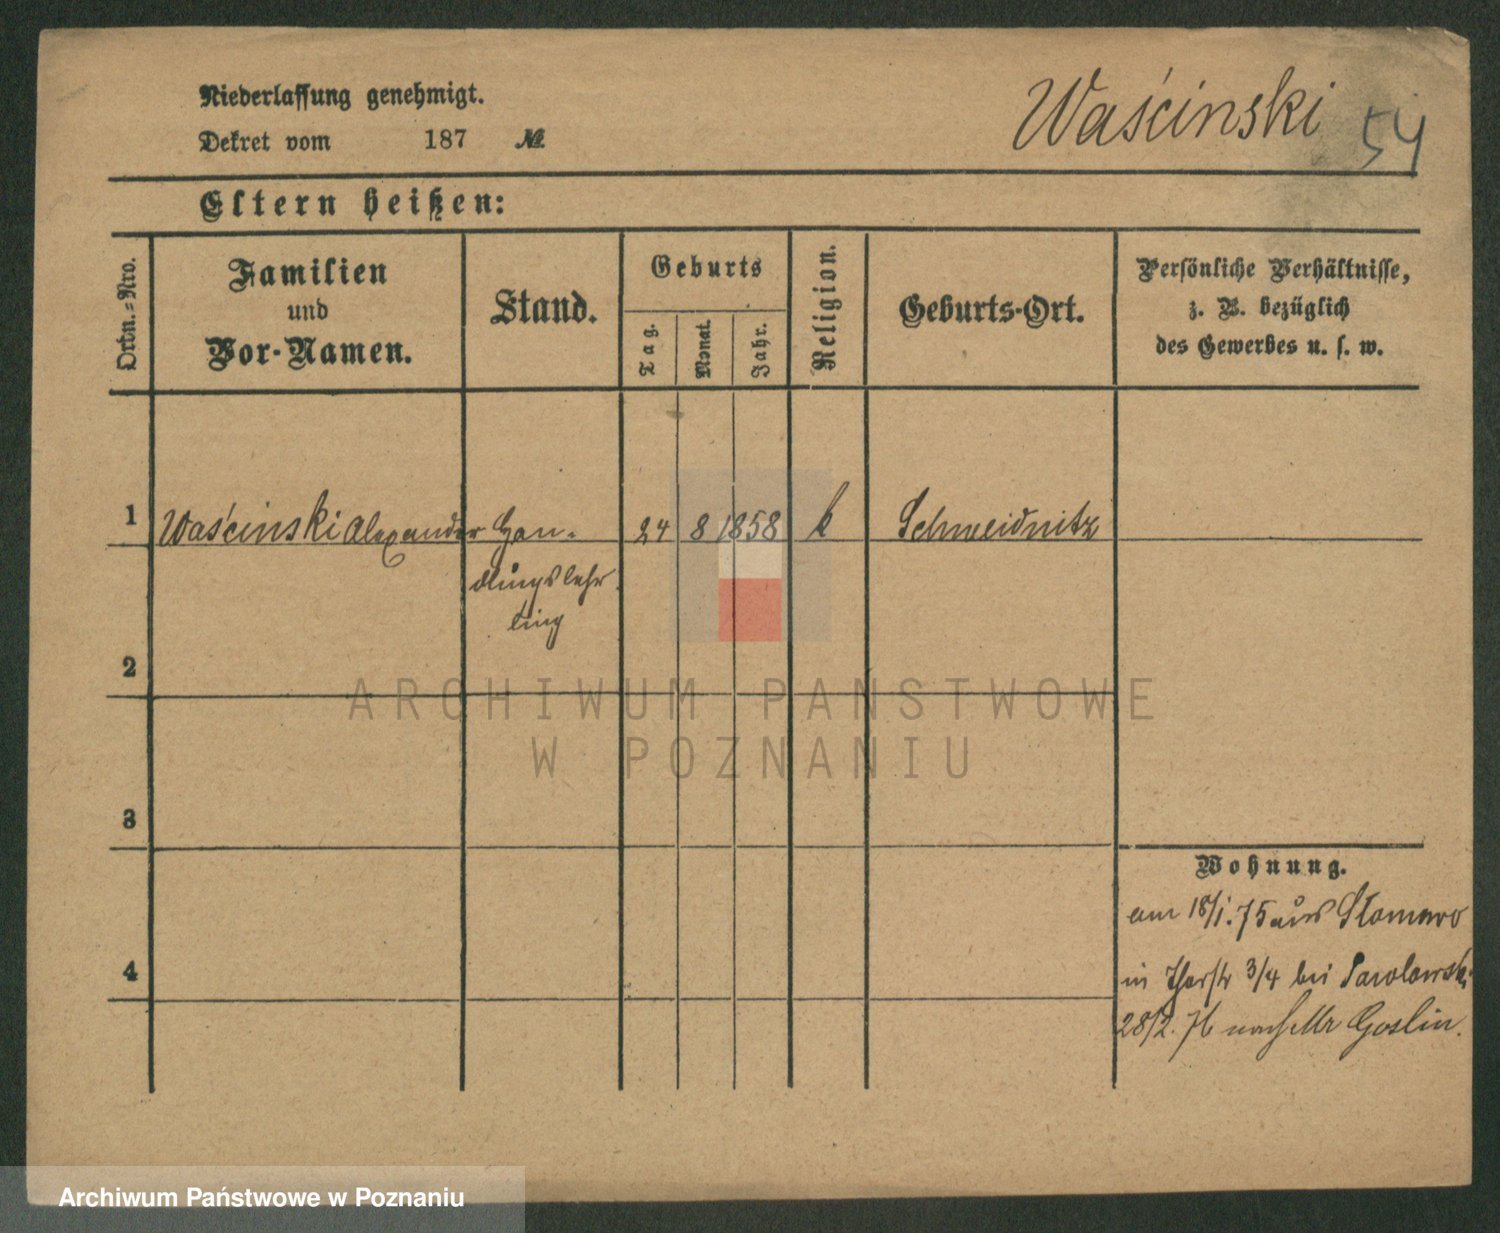 Niederlassung genehmigt.
Waścinski 54
Dekret vom 187 №
Eltern heißen:
Ordn.-Nro.
Familien
und
Vor-Namen.
Stand.
Geburts
Tag.
Monat.
Jahr.
Religion.
Geburts-Ort.
Persönliche Verhältnisse,
z. B. bezüglich
des Gewerbes u. s. w.
1 Waścinski Alexander Han-
dlungslehr
ling
24 8 1858 k Schweidnitz
2
3
4
Wohnung.
am 18/1. 75 aus Słomowo
in 3/4 bei
28/2. 76 nach Mr Goslin.
ARCHIWUM PAŃSTWOWE
W POZNANIU
Archiwum Państwowe w Poznaniu